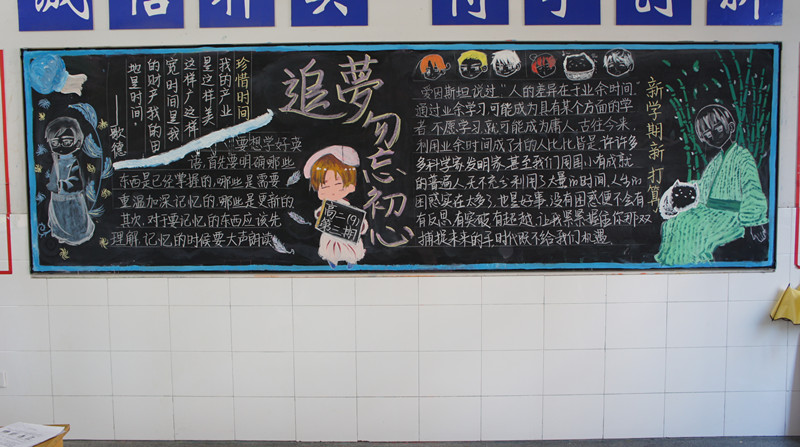 诚信和美
博学创新
珍惜时间
我的产业
是这样美
这样广这样
宽时间是我
的财产我的田
地是时间,
——歌德
追夢勿忘初心
要想学好英
语,首先要明确哪些
东西是已经掌握的,哪些是需要
重温加深记忆的,哪些是更新的
其次,对于要记忆的东西应该先
理解,记忆的时候要大声朗读
高二(9)
第三期
爱因斯坦说过:“人的差异在于业余时间”
通过业余学习,可能成为具有某个方面的学
者,不愿学习,就可能成为庸人,古往今来,
利用业余时间成了材的人比比皆是,许许多
多科学家发明家,甚至我们周围小有成就
的普通人,无不充分利用了大量的时间,人生的
困惑实在太多,也是好事,没有困惑便不会有
有反思,有突破,有超越,让我紧紧握住你那双
捕捉未来的手,时代既不给我们机遇.
新学期新打算